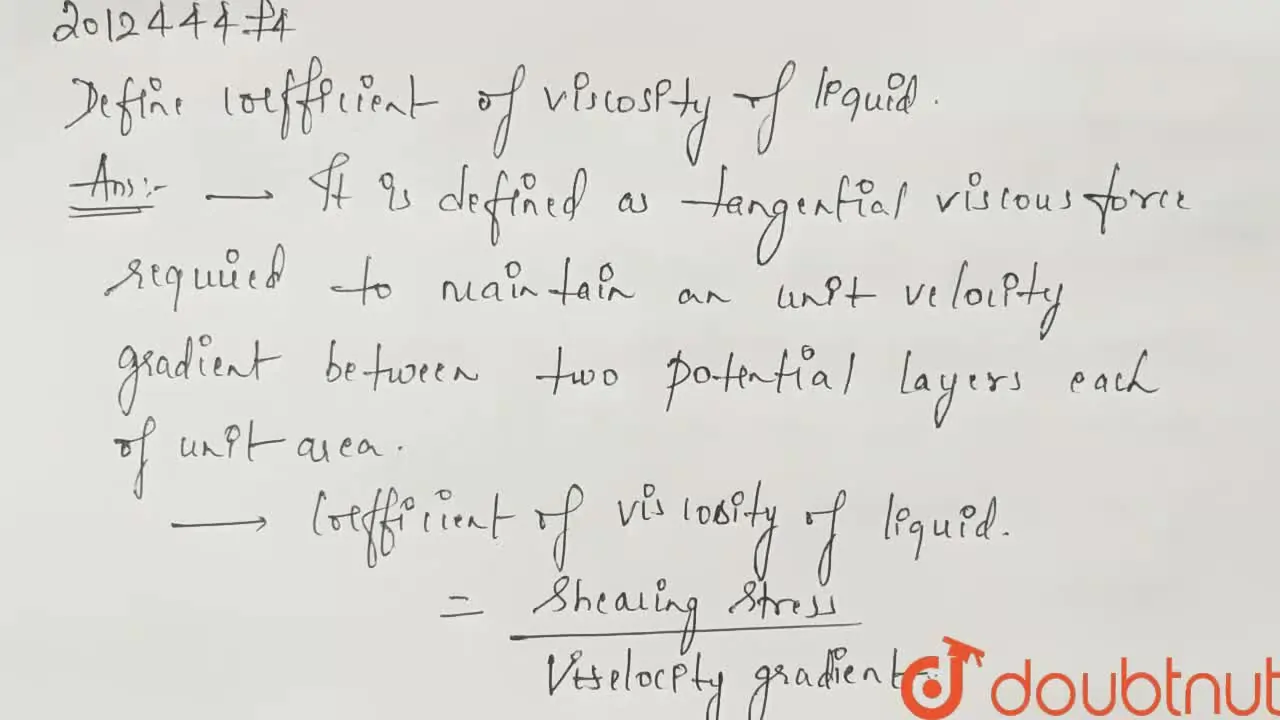 201244474
Define coefficient of viscosity of liquid.
Ans:- → It is defined as tangential viscous force
required to maintain an unit velocity
gradient between two potential layers each
of unit area.
→ Coefficient of viscosity of liquid.
= Shearing stress
Velocity gradient
doubtnut